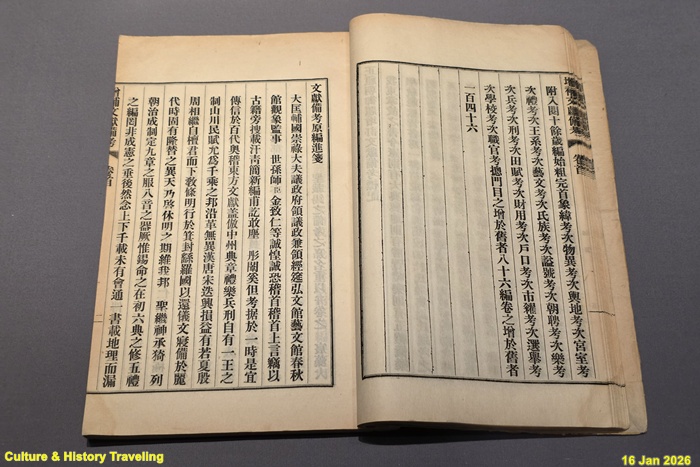 附入閱十餘歲編始粗完首象緯考次物異考次輿地考次宮室考
次禮考次王系考次藝文考次氏族考次諡號考次朝聘考次樂考
次兵考次刑考次田賦考次財用考次戶口考次市糴考次選擧考
次學校考次職官考摠門目之增於舊者八十六編卷之增於舊者
一百四十六
文獻備考原編進箋
大匡輔國崇祿大夫議政府領議政兼領經筵弘文館藝文館春秋
館觀象監事 世孫師臣金致仁等誠惶誠恐稽首稽首上言竊以
古籍旁搜載汗靑簡新編甫訖敢塵 彤闥奚但考据於一時是宜
傳信於百代奧稽東方文獻蓋倣中州典章禮樂兵刑自有一王之
制山川民賦允爲千乘之邦沿革無異漢唐宋迭興損益有若夏殷
周相繼自檀君而下敎條明行於箕封繇羅國以還儀文寖備於麗
代時固有隆替之異天乃啓休明之期維我邦 聖繼神承猗 列
朝治成制定九章之服八音之器厥惟錫命之在初六典之修五禮
之編罔非成憲之垂後然念上下千載未有會通一書載地理而漏
增補文獻備考 卷首
Culture & History Traveling
16 Jan 2026